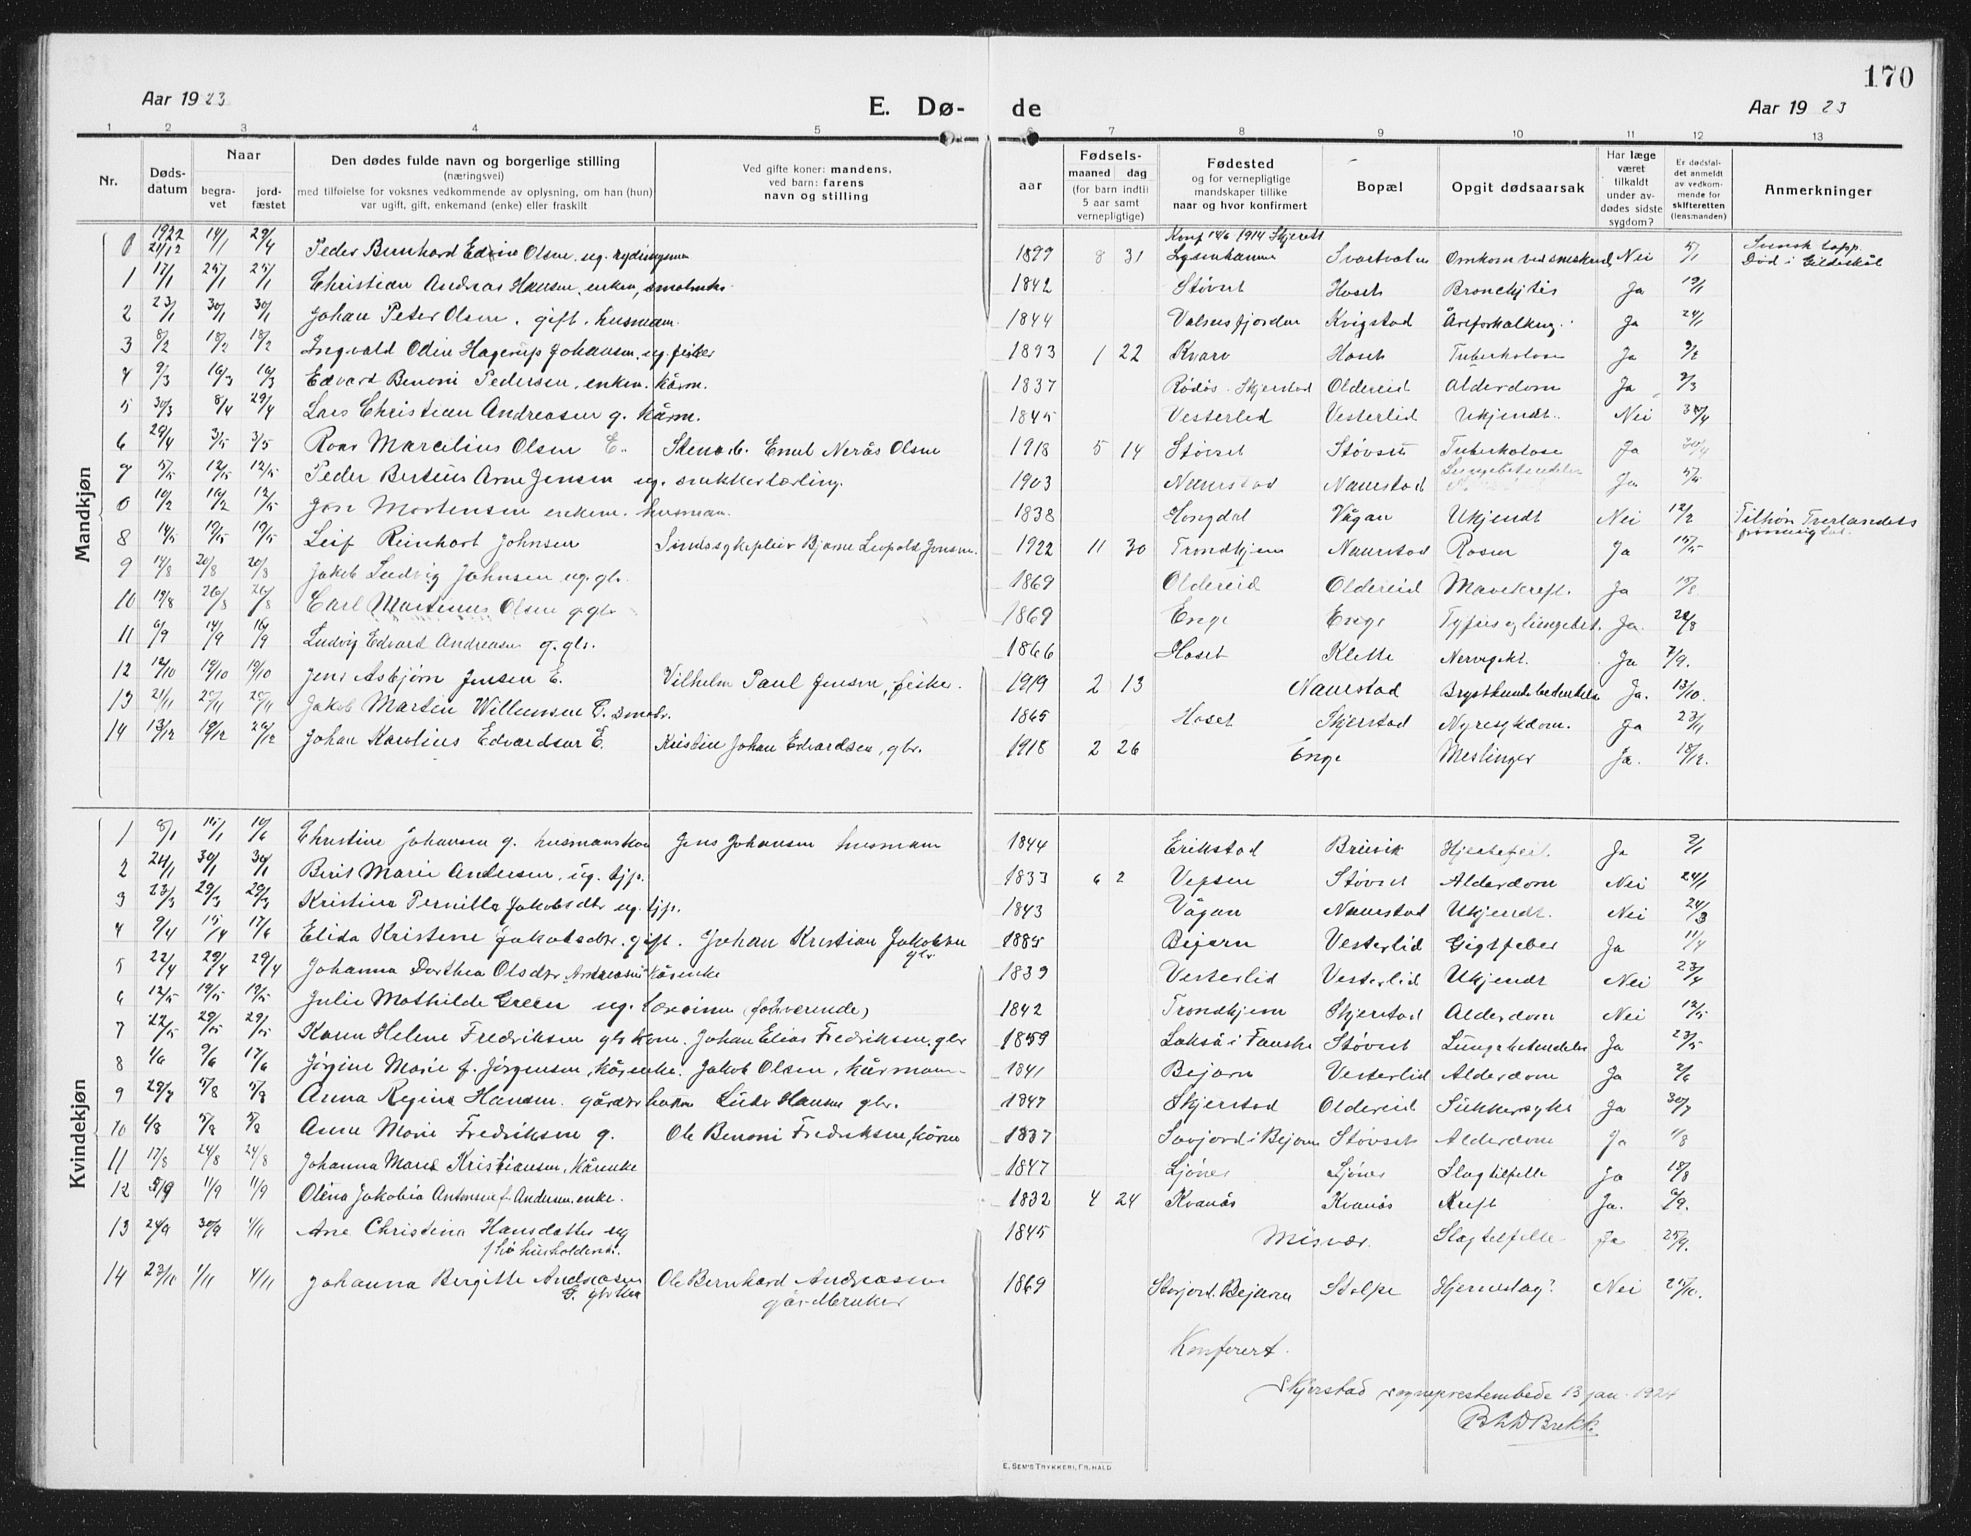 170
Aar 1923
E. Dø-
de
Aar 1923
1 2 3 4 5 6 7 8 9 10 11 12 13
Nr.
Døds-
datum
Naar
begra-
vet
jord-
fæstet
Den dødes fulde navn og borgerlige stilling
(næringsvei)
med tilføielse for voksnes vedkommende av oplysning, om han (hun)
var ugift, gift, enkemand (enke) eller fraskilt
Ved gifte koner: mandens,
ved barn: farens
navn og stilling
aar
Fødsels-
maaned dag
(for barn indtil
5 aar samt
vernepligtige)
Fødested
og for vernepligtige
mandskaper tillike
naar og hvor konfirmert
Bopæl
Opgit dødsaarsak
Har læge
været
tilkaldt
under av-
dødes sidste
sygdom?
Er dødsfal-
det anmeldt
av vedkom-
mende for
skifteretten
(lensmanden)
Anmerkninger
Mandkjøn
0 1922 21/12 14/1 29/4 Peder Bernhard Edvin Olsen, ug. 1899 8 31 Konf 14/6 1914 Svartvatn Omkom ved Nei 5/1 Død i Gildeskål
1 17/1 25/1 25/1 Christian Andreas Hansen, enkem, 1842 Støvset Hoset Bronchitis Ja 19/1
2 23/1 30/1 30/1 Johan Peter Olsen, gift, husmann. 1844 Valnesfjorden Kvigstad Åreforkalkng. Ja 24/1
3 8/2 18/2 18/2 Ingvald Odin Hagerup Johansen, ug. fisker 1893 1 22 Kvarv Hoset Tuberkolose Ja 9/2
4 9/3 16/3 16/3 Edvard Benoni Pedersen, enkem. kårm. 1837 Rødøs. Skjerstad Oldereid Alderdom Ja 9/3
5 30/3 8/4 29/4 Lars Christian Andreasen g. kårm. 1845 Vesterlid Vesterlid Ukjendt. Nei
6 29/4 3/5 3/5 Roar Marcelius Olsen E. Stenarb. Emil Nerås Olsen 1918 5 14 Støvset Støvset Tuberkolose Ja 30/4
7 5/5 12/5 12/5 Peder Bertius Arne Jensen ug. snikkerlærling. 1903 Naurstad Naurstad Lungebetendelse Ja 5/5
0 10/2 16/2 12/5 Jon Mortensen enkem. husman. 1838 Hongdal Vågan Ukjendt Nei 12/2 Tilhør Tverlandets
8 14/5 19/5 19/5 Leif Reinhart Johnsen Sindssykepleier Bjarne Leopold Jensen. 1922 11 30 Trondhjem Naurstad Rosen Ja 15/5
9 14/8 20/8 20/8 Jakob Ludvig Johnsen ug. gbr. 1869 Oldereid Oldereid Mavekreft. Ja
10 19/8 26/8 26/8 Carl Martinus Olsen g. gbr 1869 Enge Enge Tyfus og lungebet. Ja. 22/8
11 6/9 14/9 16/9 Ludvig Edvard Andreasen g. gbr. 1866 Hoset Klette Nervegikt. Ja 7/9.
12 12/10 19/10 19/10 Jens Asbjørn Jensen E. Vilhelm Paul Jensen, fisker. 1919 2 13 Naurstad Brysthindebetendelse Ja. 13/10.
13 21/11 Jakob Martin Willumsen E. smabr. 1865 Hoset Skjerstad Nyresykdom. Ja 23/11
14 13/12 19/12 20/12 Johan Karolius Edvardsen E. Kristian Johan Edvardsen, gbr. 1918 2 26 Enge Meslinger Ja. 18/12.
Kvindekjøn
1 8/1 15/1 10/6 Christine Johansen g. husmanskone Jens Johansen husmann 1844 Erikstad Breivik Hjertefeil. Ja 9/1
2 24/1 30/1 30/1 Berit Marie Andersen, ug. tjp. 1833 6 2 Vepsen Støvset Alderdom Nei 24/1
3 23/3 29/3 29/3 Kristina Pernilla Jakobsdtr ug. tjp. 1843 Vågan Naurstad Ukjendt. Nei 24/3
4 9/4 15/4 17/6 Elida Kristine Jakobsdtr. gift. Johan Kristian Jakobsen gbr 1885 Bejarn Vesterlid Gigtfeber Ja 11/4
5 22/4 29/4 29/4 Johanna Dorthea Olsdtr Andreasen kårenke 1839 Vesterlid Vesterlid Ukjendt Nei 23/4
6 12/5 19/5 19/5 Julie Mathilde Green ug. Lærerinne (forhverende) 1842 Trondhjem Skjerstad Alderdom Nei 12/5
7 22/5 29/5 29/5 Karen Helene Fredriksen gbr kone. Johan Elias Fredriksen, gbr 1859 Lakså i Fauske Støvset Lungebetendelse Ja 23/5
8 1/6 9/6 17/6 Jørgine Marie f. Jørgensen, kårenke. Jakob Olsen, kårmann 1841 Bejarn Vesterlid Alderdom Ja 2/6
9 29/7 5/8 5/8 Anna Regine Hansen. gårdbr kone Ludv Hansen gbr. 1847 Skjerstad Oldereid Sukkersyke Ja 30/7
10 5/8 5/8 Anne Marie Fredriksen g. Ole Benoni Fredriksen, kårm 1837 i Bejarn Støvset Alderdom Ja 1/8
11 17/8 24/8 24/8 Johanna Marie Kristiansen, kårenke 1847 Ljønes Ljønes Slagtilfelle Ja 18/8
12 5/9 11/9 11/9 Olena Jakobia Antonsen f. Andersen, enke. 1832 4 24 Kvanås Kvanås Kreft Ja. 6/9.
13 24/9 30/9 4/11 Ane Christina Hansdatter ug husholderske. 1845 Misvær. Slagtilfelle Ja 25/9.
14 23/10 1/11 4/11 Johanna Bergitte Andreasen G. gbr kone Ole Bernhard Andreassen gårdbruker 1869 Storjord. Bejarn Stolpe Hjerneslag? Nei 25/10.
Konferert.
Skjerstad sogneprestembede 13 jan. 1924
Brekke
E. SEM'S TRYKKERI, FR.HALD